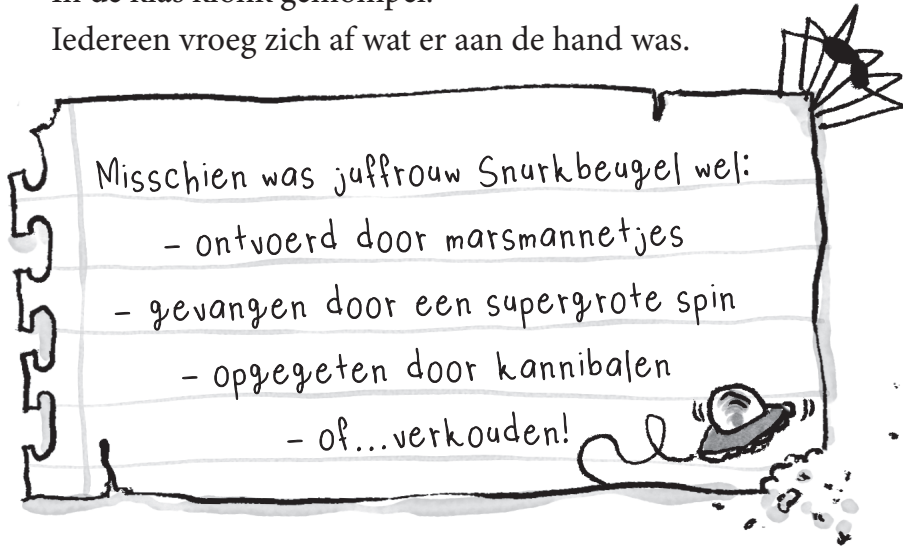 In de klas klonk gemompel.
Iedereen vroeg zich af wat er aan de hand was.
Misschien was juffrouw Snurkbeugel wel:
- ontvoerd door marsmannetjes
- gevangen door een supergrote spin
- opgegeten door kannibalen
- of...verkouden!